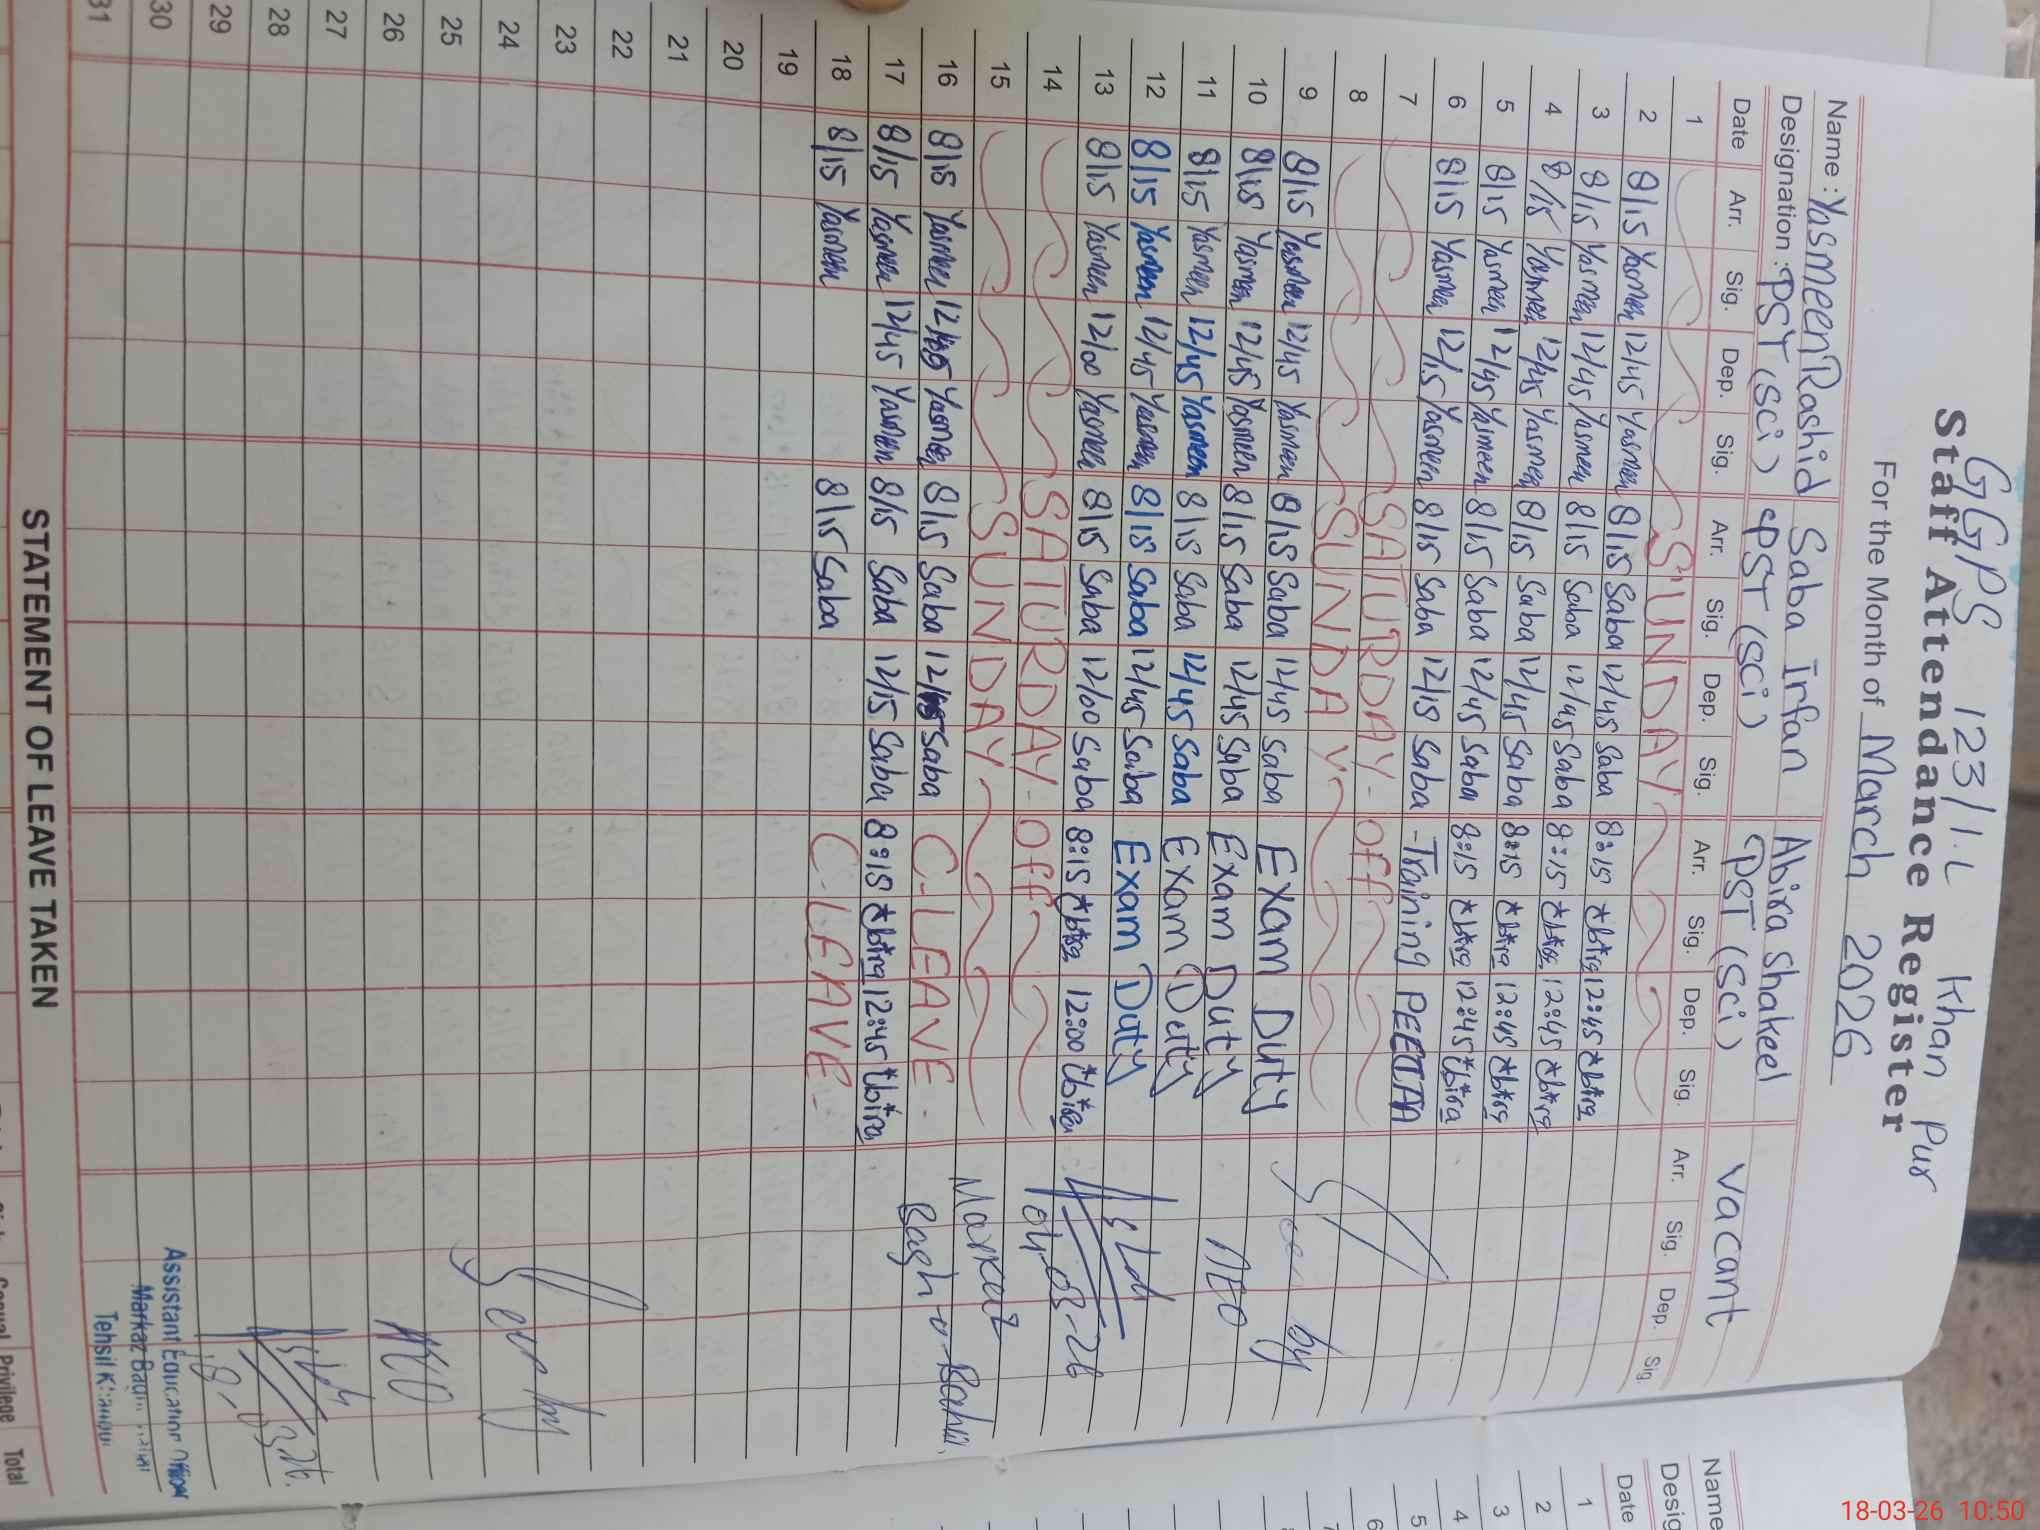 GGPS 123/1.L Khan Pur
Staff Attendance Register
For the Month of March 2026
Name : Yasmeen Rashid Saba Irfan Abira Shakeel Vacant
Designation : PST (Sci) PST (Sci) PST (Sci)
Date Arr. Sig. Dep. Sig. Arr. Sig. Dep. Sig. Arr. Sig. Dep. Sig. Arr. Sig. Dep. Sig.
1 SUNDAY
2 8/15 Yasmeen 12/45 Yasmeen 8/15 Saba 12/45 Saba 8:15 Abira 12:45 Abira
3 8/15 Yasmeen 12/45 Yasmeen 8/15 Saba 12/45 Saba 8:15 Abira 12:45 Abira
4 8/15 Yasmeen 12/45 Yasmeen 8/15 Saba 12/45 Saba 8:15 Abira 12:45 Abira
5 8/15 Yasmeen 12/45 Yasmeen 8/15 Saba 12/45 Saba 8:15 Abira 12:45 Abira
6 8/15 Yasmeen 12/15 Yasmeen 8/15 Saba 12/15 Saba - Training
7 SATURDAY - Off
8 SUNDAY
9 8/15 Yasmeen 12/45 Yasmeen 8/15 Saba 12/45 Saba Exam Duty Seen by
10 8/15 Yasmeen 12/45 Yasmeen 8/15 Saba 12/45 Saba Exam Duty AEO
11 8/15 Yasmeen 12/45 Yasmeen 8/15 Saba 12/45 Saba Exam Duty
12 8/15 Yasmeen 12/45 Yasmeen 8/15 Saba 12/45 Saba Exam Duty
13 8/15 Yasmeen 12/00 Yasmeen 8/15 Saba 12/00 Saba 8:15 Abira 12:00 Abira
14 SATURDAY - Off 04-03-26
15 SUNDAY Markaz
16 8/15 Yasmeen 12/45 Yasmeen 8/15 Saba 12/45 Saba C-LEAVE - Bagh-o-Bahar
17 8/15 Yasmeen 12/45 Yasmeen 8/15 Saba 12/15 Saba 8:15 Abira 12:45 Abira
18 8/15 Yasmeen 8/15 Saba C-LEAVE -
19
20
21
22
23
24 Seen by
25
26 AEO
27
28
29 18-03-26
30 Assistant Education Officer
31 Markaz
Tehsil
STATEMENT OF LEAVE TAKEN
Casual Privilege Total
Name
Desig
Date
1
2
3
4
5
6
18-03-26 10:50